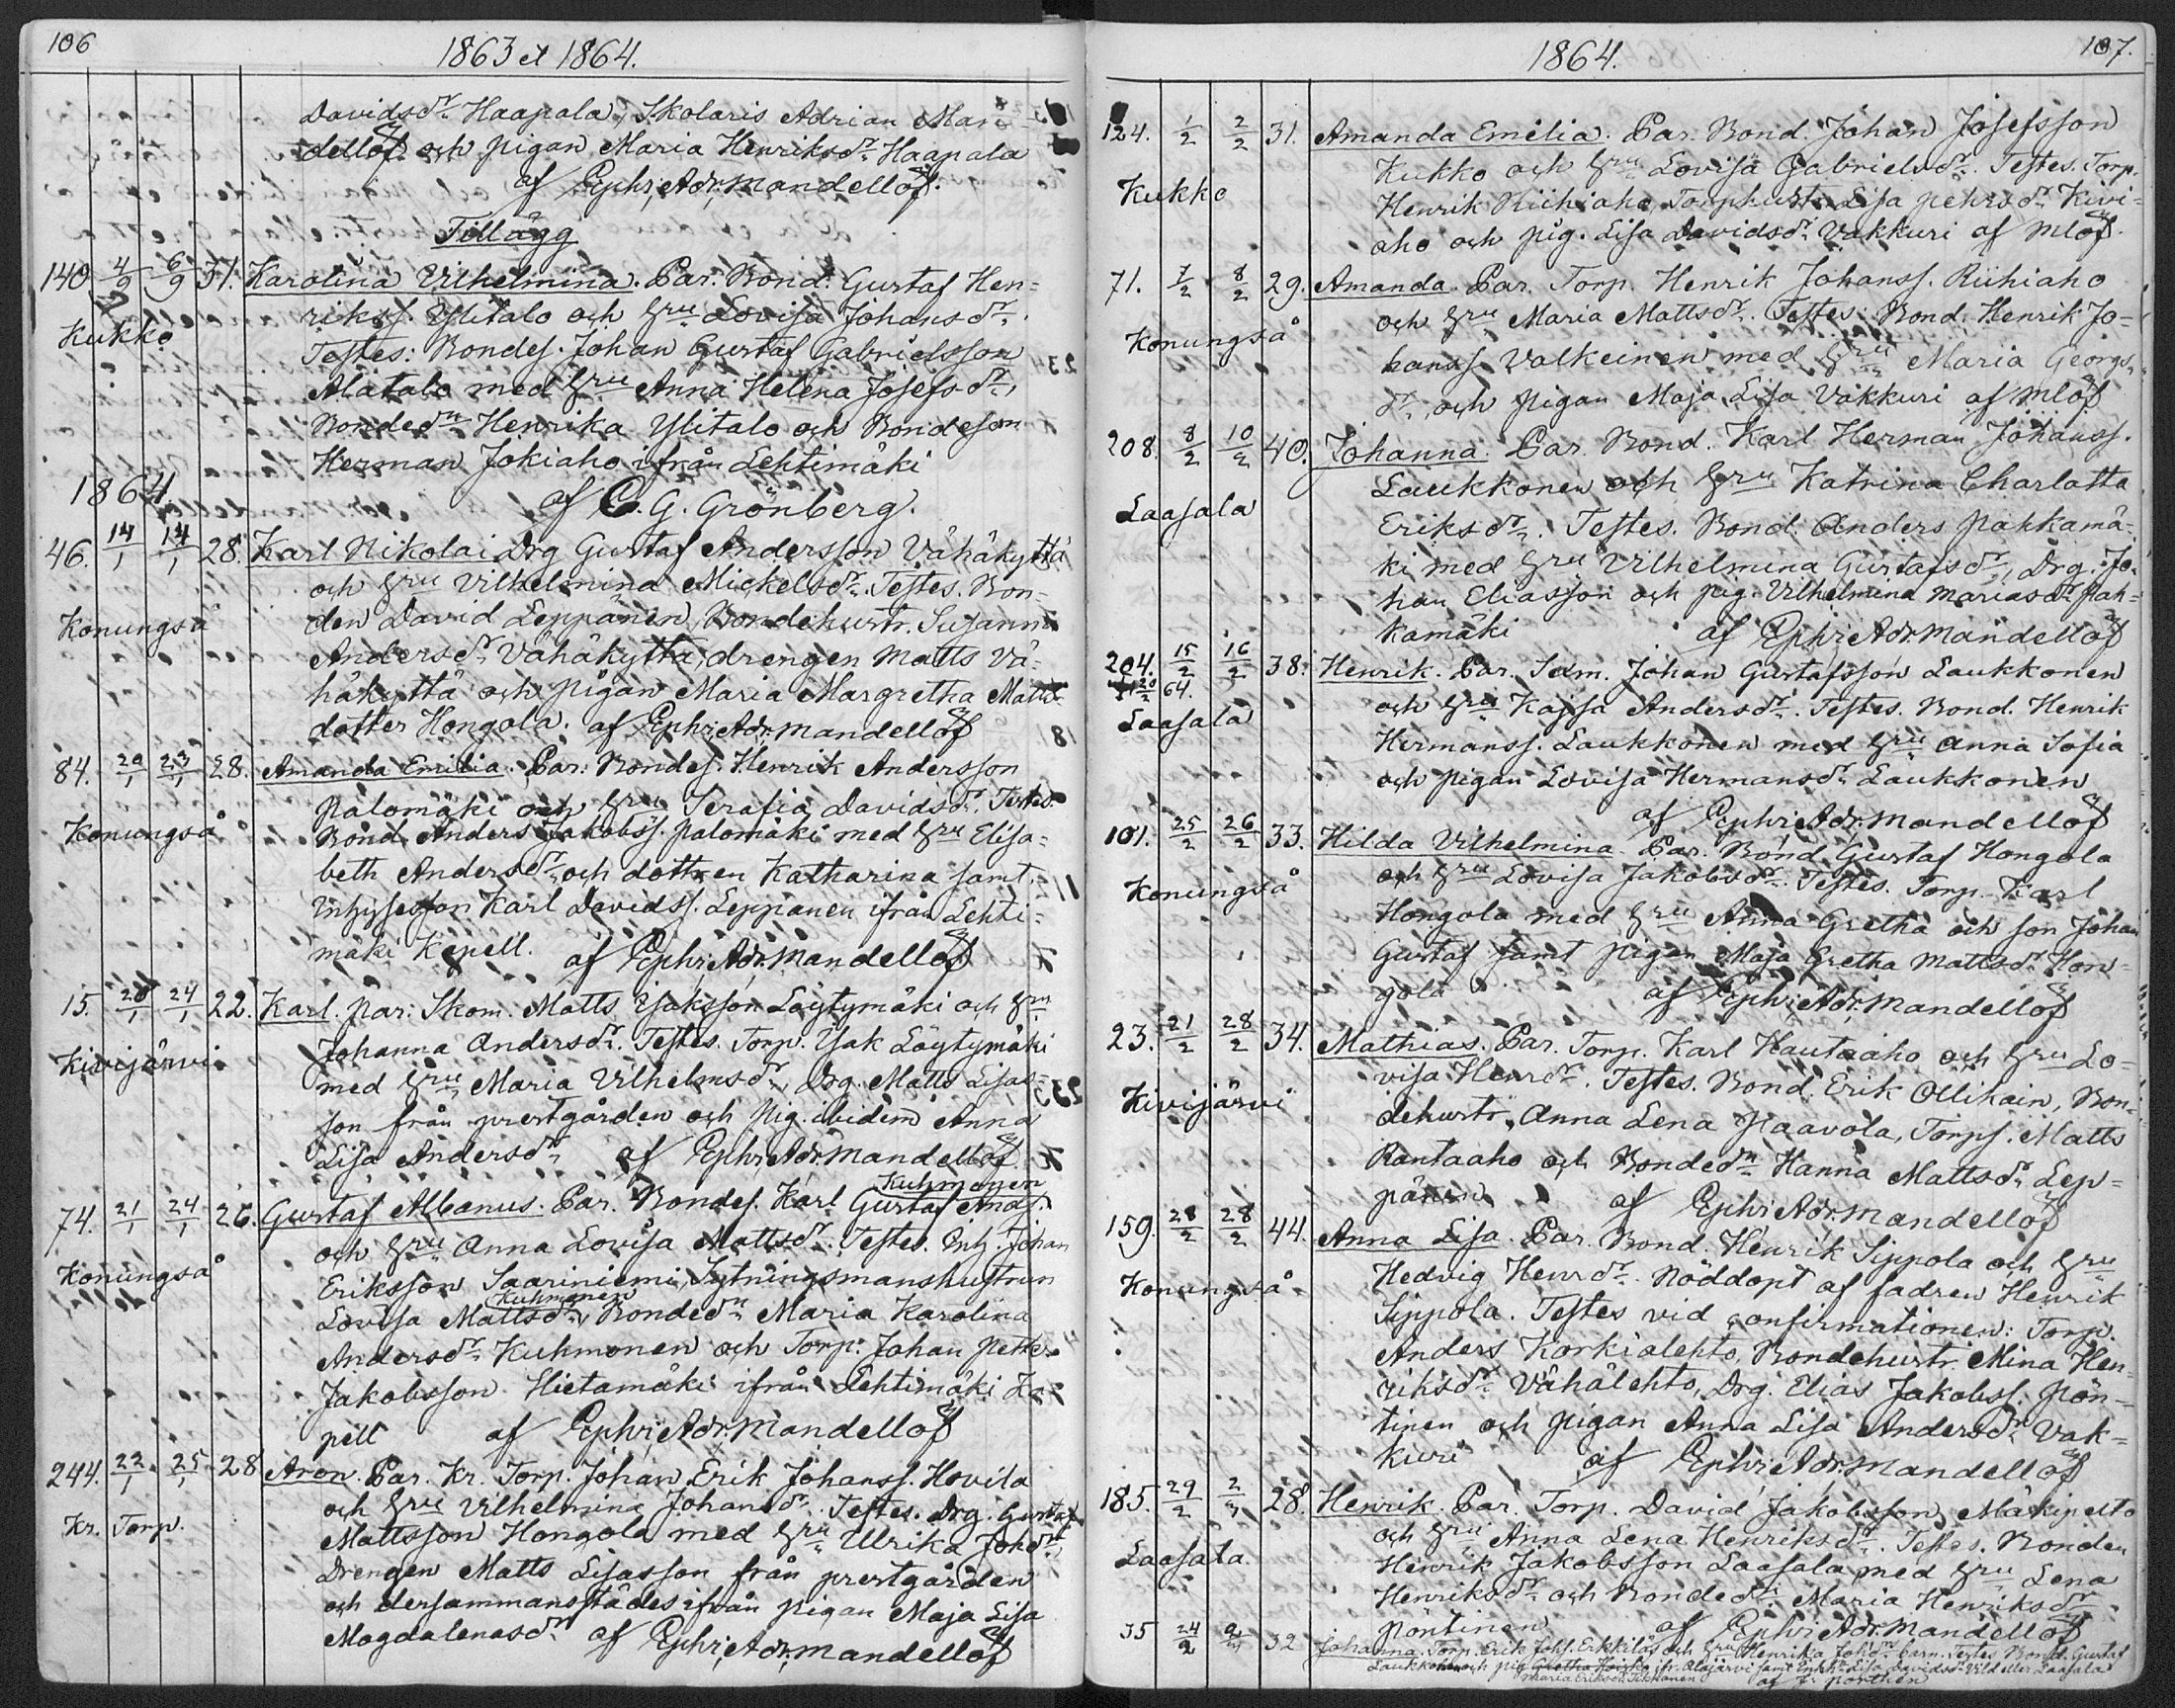 106
1863 et 1864.
Davidsdr Haapala, Skolaris Adrian Man-
dellöf och pigan Maria Henriksdr Haapala
af Ephr; Adr; Mandellöf.
Tillägg
140 4/9 6/9 31. Karolina Vilhelmina. Par. Bond. Gustaf Hen=
rikss. Ylitalo och hru Lovisa Johansdr.
Kukko
Testes: Bondes. Johan Gustaf Gabrielsson
Alatalo med hru Anna Helena Josefsdr,
Bondedtr Henrika Ylitalo och Bondeson
Herman Jokiaho ifrån Lehtimäki
1864.
af C. G. Grönberg.
46. 14/1 14/1 28. Karl Nikolai Drg Gustaf Andersson Vähäkyttä
och hru Vilhelmina Mickelsdr. Testes. Bon-
Konungså
den David Leppänen, Bondehustr. Susanna
Andersdr Vähäkyttä, drengen Matts Vä-
häkyttä och pigan Maria Margretha Matts
dotter Hongola. af Ephr; Adr. Mandellöf
84. 20/1 23/1 28. Amanda Emilia. Par: Bondes. Henrik Andersson
Palomäki och hru Serafia Davidsdr. Testes.
Konungså
Bond. Anders Jakobss. Palomäki med hru Elisa=
beth Andersdr och dottren Katharina samt
Karl Davidss. Leppänen ifrån Lehti=
mäki Kapell. af Ephr; Adr. Mandellöf
15. 20/1 24/1 22. Karl. Par: Skom. Matts Isaksson Löytymäki och hru
Johanna Andersdr. Testes. Torp. Isak Löytymäki
Kivijärvi
med hru Maria Vilhelmsdr, Drg. Matts Lisas-
son från prestgården och pig. ibidem Anna
Lisa Andersdr af Ephr; Adr. Mandellöf
Kuhmonen
74. 21/1 24/1 26. Gustaf Albanus. Par. Bondes. Karl Gustaf Ands.
och hru Anna Lovisa Mattsdr. Testes. Inh. Johan
Konungså
Eriksson Saariniemi, Sytningsmanshustrun
Kuhmonen
Lovisa Mattsdr, Bondedtr Maria Karolina
Andersdr Kuhmonen och Torp: Johan Petter
Jakobsson Hietamäki ifrån Lehtimäki Ka-
pell af Ephr; Adr. Mandellöf
244. 22/1 25/1 28 Aron. Par. Kr. Torp. Johan Erik Johanss. Hovila
och hru Vilhelmina Johansdr. Testes. Drg. Gustaf
Kr. Torp.
Mattsson Hongola med hru Ulrika Johdr,
Drengen Matts Lisasson från prestgården
och dersammanstädes ifrån pigan Maja Lisa
Magdalenasdr af Ephr; Adr; Mandellöf
107.
1864.
124. 1/2 2/2 31. Amanda Emilia. Par. Bond. Johan Josefsson
Kukko och hru Lovisa Gabrielsdr. Testes. Torp.
Kukko
Henrik Riihiaho, Torphustr. Lisa Pehrsdr Kivi=
aho och pig. Lisa Davidsdr Vakkuri af Mlöf.
71. 7/2 8/2 29. Amanda. Par. Torp. Henrik Johanss. Riihiaho
och hru Maria Mattsdr. Testes: Bond. Henrik Jo=
Konungså
hanss. Valkeinen med hru Maria Georgs-
dr, och pigan Maja Lisa Vakkuri af Mlöf
208. 8/2 10/2 40. Johanna. Par. Bond. Karl Herman Johanss.
Laukkonen och hru Katrina Charlotta
Laasala
Eriksdr. Testes. Bond. Anders Pahkamä-
ki med hru Vilhelmina Gustafsdr, Drg. Jo-
han Eliasson och pig. Vilhelmina Mariasdr Pah=
kamäki af Ephr; Adr Mandellöf
204. 15/2 16/2 38. Henrik. Par. Sedm. Johan Gustafsson Laukkonen
64.
och hru Kajsa Andersdr. Testes. Bond. Henrik
Laasala
Hermanss. Laukkonen med hru Anna Sofia
och pigan Lovisa Hermansdr Laukkonen
af Ephr; Adr. Mandellöf
101. 25/2 26/2 33. Hilda Vilhelmina. Par. Bond. Gustaf Hongola
och hru Lovisa Jakobsdr. Testes. Torp. Karl
Konungså
Hongola med hru Anna Gretha och son Johan
Gustaf samt pigan Maja Gretha Mattsdr Hon-
gola af Ephr; Adr. Mandellöf
23. 21/2 28/2 34. Mathias. Par. Torp. Karl Hautaaho och hru Lo=
visa Henrdr. Testes. Bond. Erik Ollikain, Bon-
Kivijärvi
dehustr. Anna Lena Paavola, Torps. Matts
Rantaaho och Bondedtr Hanna Mattsdr Lep=
pänen af Ephr; Adr. Mandellöf
159. 28/2 28/2 44. Anna Lisa. Par. Bond. Henrik Sippola och hru
Hedvig Henrdr. Nöddopt af fadren Henrik
Konungså
Sippola. Testes vid confirmationen: Torp.
Anders Korkialehto, Bondehustr. Mina Hen-
riksdr Vähälehto, Drg. Elias Jakobss. Pön-
tinen och pigan Anna Lisa Andersdr Vak=
kuri af Ephr; Adr. Mandellöf
185. 29/2 2/3 28. Henrik. Par. Torp. David Jakobsson Mäkipelto
och hru Anna Lena Henriksdr. Testes. Bonden
Laasala
Henrik Jakobsson Laasala, med hru Lena
Henriksdr och Bondedtr. Maria Henriksdr
Pöntinen af Ephr; Adr. Mandellöf
35 24/2 2/3 32 Johanna. Torp. Erik Johss. Erkkilä och hru Henrika Johdtr barn. Testes Bond. Gustaf
Laukkonen och pig. fr. Alajärvi samt Lisa Davidsdr Laasala
Maria Eriksdr Tikkanen af J. Porthén